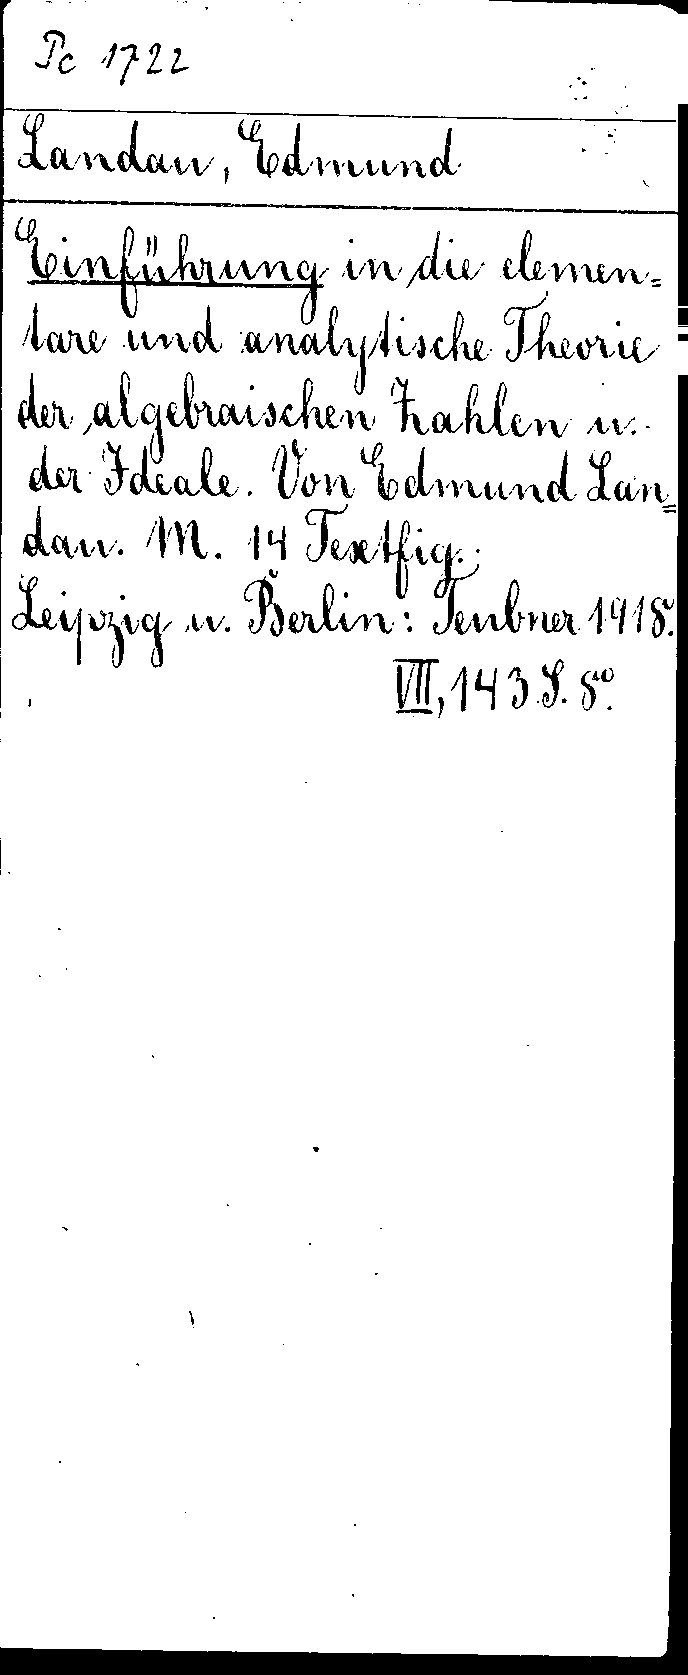 Pc 1722
Landau, Edmund
Einführung in die elemen=
tare und analytische Theorie
der algebraischen Zahlen u.
der Ideale. Von Edmund Lan=
dau. M. 14 Textfig.
Leipzig u. Berlin: Teubner 1918.
VII, 143 S. 8°.